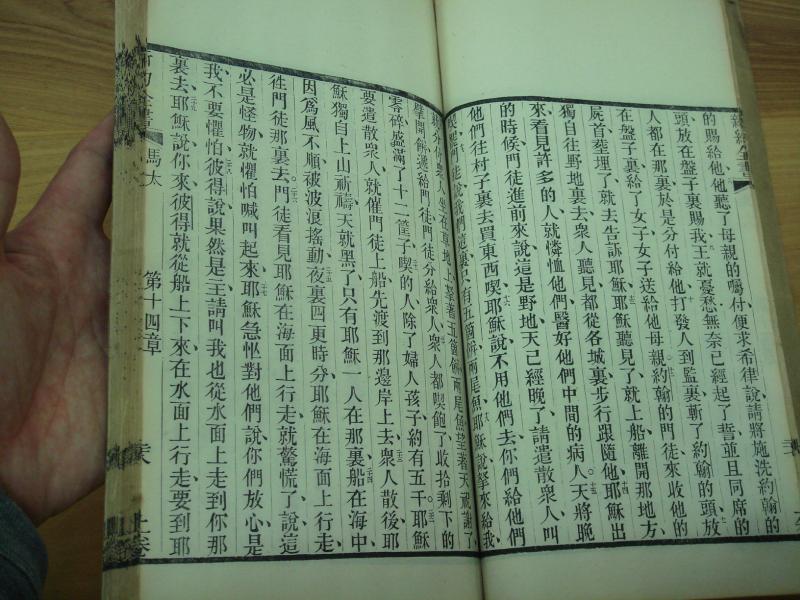 的賜給他他聽了母親的囑付便求希律說請將施洗約翰的
頭放在盤子裏賜我王就憂愁無奈已經起了誓並且同席的
人都在那裏於是分付給他打發人到監裏斬了約翰的頭放
在盤子裏給了女子女子送給他母親約翰的門徒來收他的
屍首葬埋了就去告訴耶穌耶穌聽見了就上船離開那地方
獨自往野地裏去衆人聽見都從各城裏步行跟隨他耶穌出
來看見許多的人就憐恤他們醫好他們中間的病人天將晚
的時候門徒進前來說這是野地天已經晚了請遣散衆人叫
他們往村子裏去買東西喫耶穌說不用他們去你們給他們
喫罷門徒說我們這裏只有五箇餅兩尾魚耶穌說拏來給我
分付衆人坐在草地上拏著五箇餅兩尾魚望著天祝謝了
擘開餅遞給門徒門徒分給衆人衆人都喫飽了收拾剩下的
零碎盛滿了十二筐子喫的人除了婦人孩子約有五千耶穌
要遣散衆人就催門徒上船先渡到那邊岸上去衆人散後耶
穌獨自上山祈禱天就黑了只有耶穌一人在那裏船在海中
因爲風不順被波浪搖動夜裏四更時分耶穌在海面上行走
往門徒那裏去門徒看見耶穌在海面上行走就驚慌了說這
必是怪物就懼怕喊叫起來耶穌急忙對他們說你們放心是
我不要懼怕彼得說果然是主請叫我也從水面上走到你那
裏去耶穌說你來彼得就從船上下來在水面上行走要到耶
馬太 第十四章 上卷